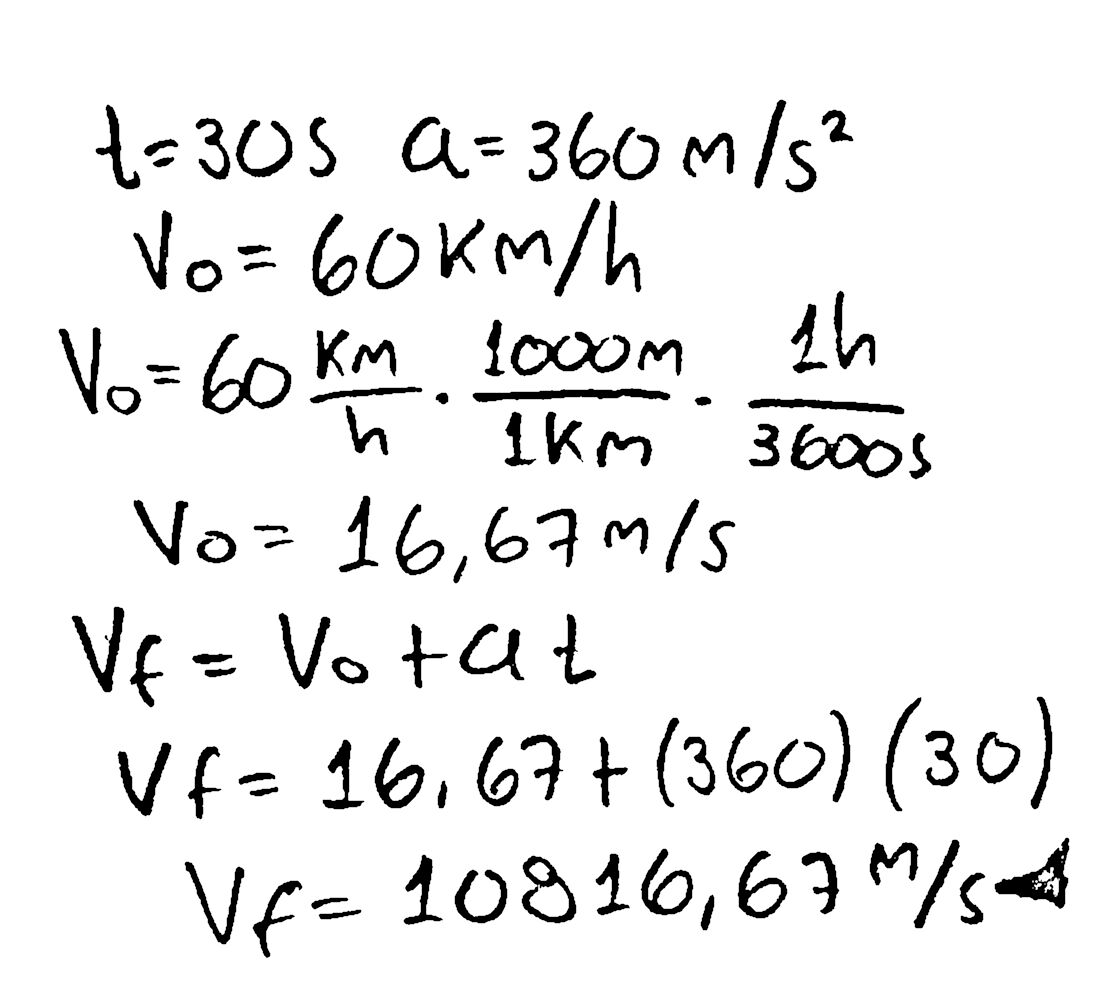 t=30s a=360m/s²
V₀=60KM/h
V₀=60 KM/h · 1000m/1Km · 1h/3600s
V₀=16,67m/s
Vf=V₀+at
Vf=16,67+(360)(30)
Vf=10816,67 m/s